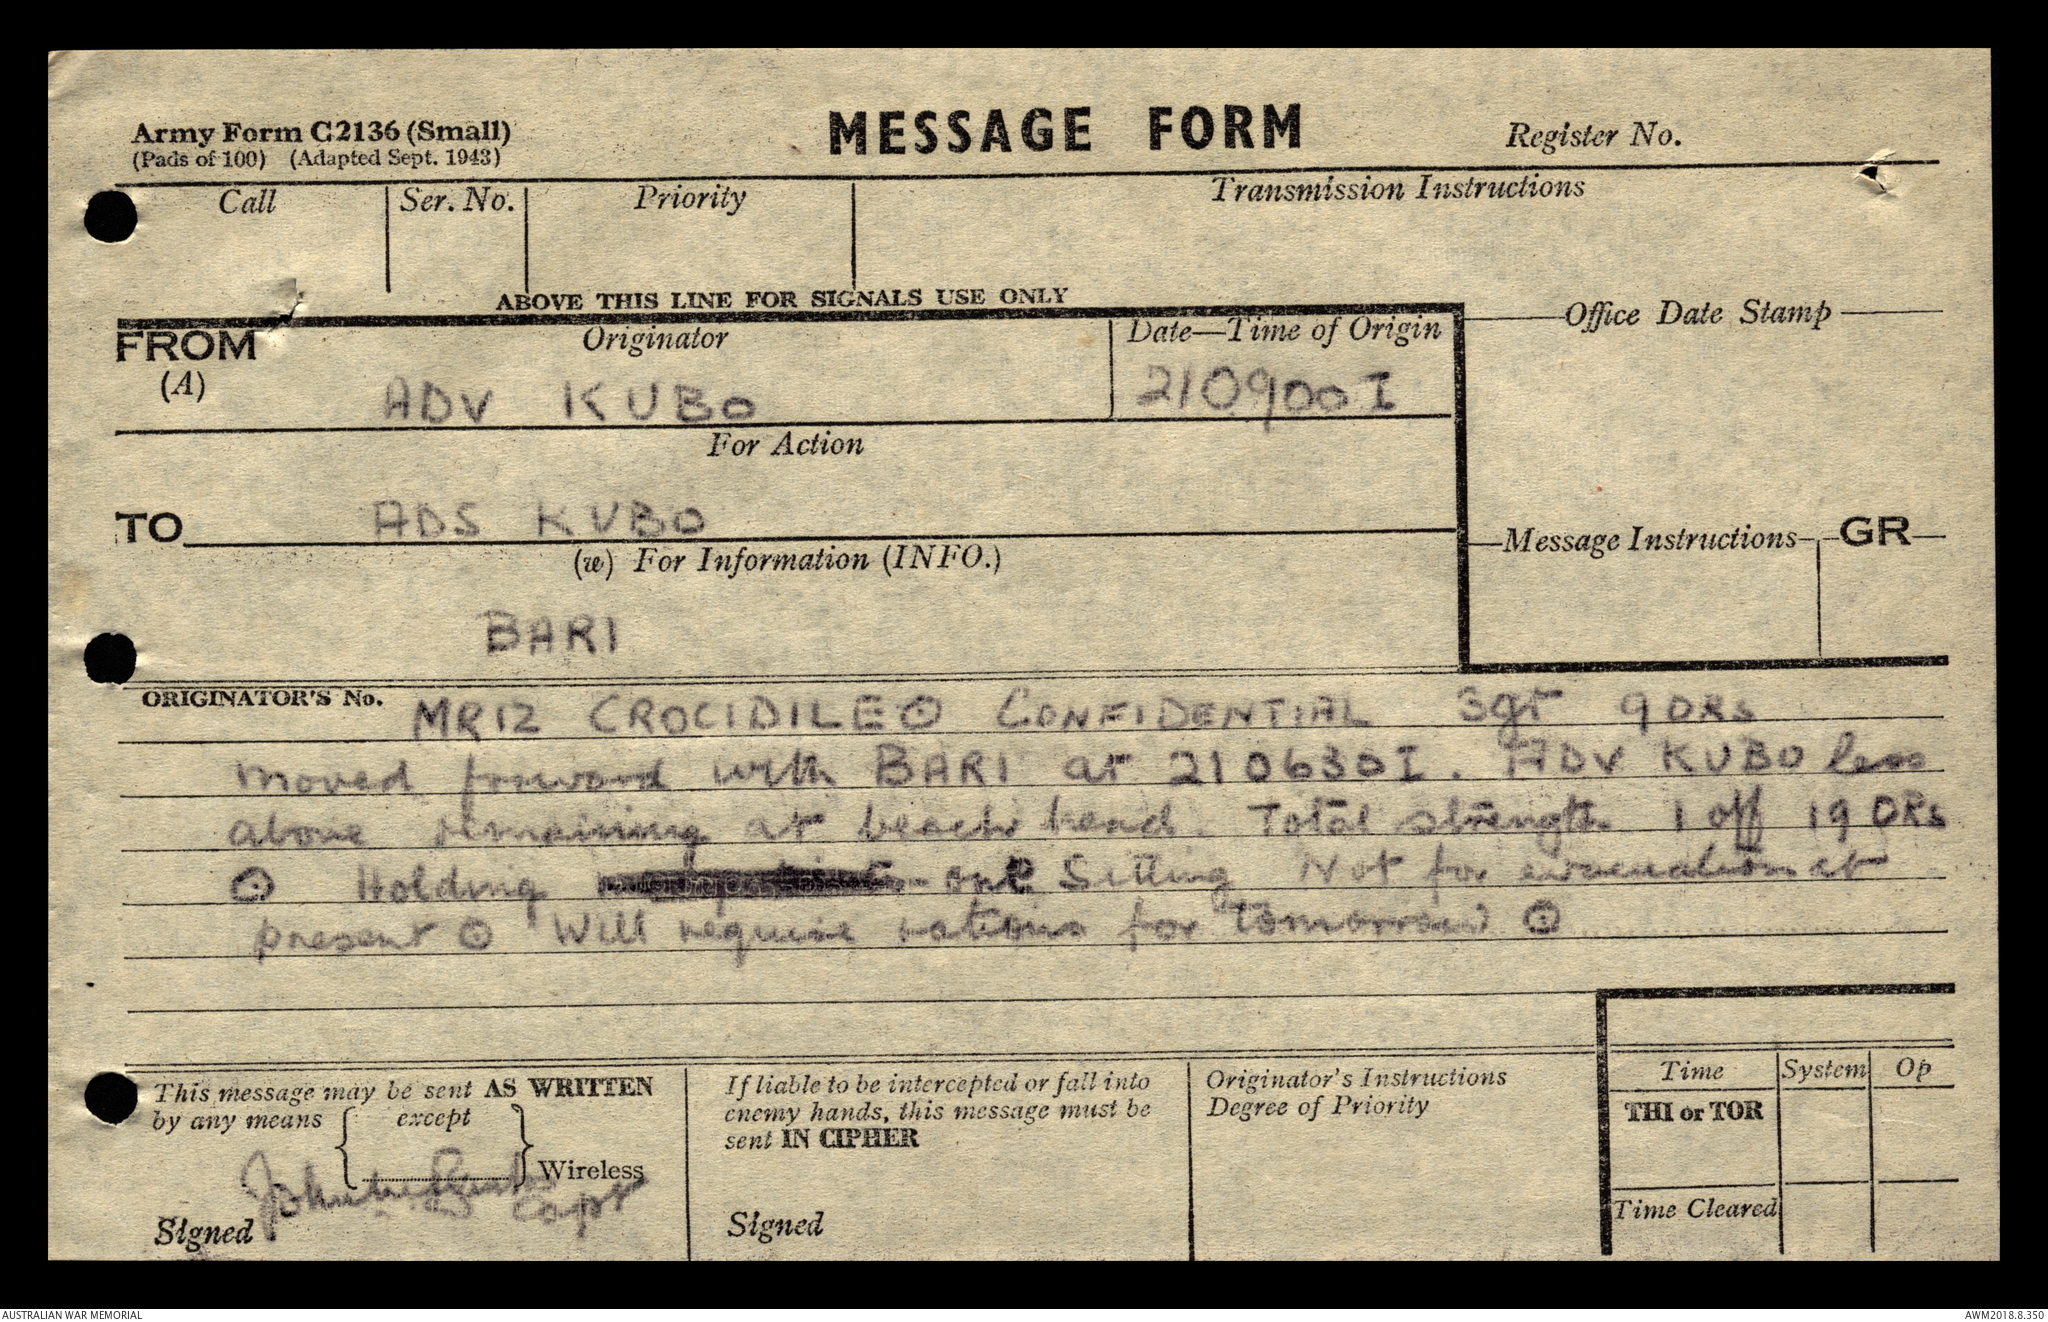 Army Form C2136 (Small)
(Pads of 100) (Adapted Sept. 1943)
MESSAGE FORM
Register No.
Call
Ser. No.
Priority
Transmission Instructions
ABOVE THIS LINE FOR SIGNALS USE ONLY
FROM
(A)
Originator
ADV KUBO
Date—Time of Origin
210900 I
Office Date Stamp
For Action
TO
ADS KUBO
(w) For Information (INFO.)
BARI
Message Instructions
GR
ORIGINATOR'S No.
MR12 CROCIDILE ⊙ CONFIDENTIAL Sgt 9 ORs
moved forward with BARI at 210630I. ADV KUBO less
above remaining at beach head. Total strength 1 off 19 ORs
⊙ Holding one Sitting Not for evacuation at
present ⊙ Will require rations for tomorrow ⊙
This message may be sent AS WRITTEN
by any means { except } Wireless
Signed
Capt
If liable to be intercepted or fall into
enemy hands, this message must be
sent IN CIPHER
Signed
Originator's Instructions
Degree of Priority
Time
System
Op
THI or TOR
Time Cleared
AUSTRALIAN WAR MEMORIAL
AWM2018.8.350